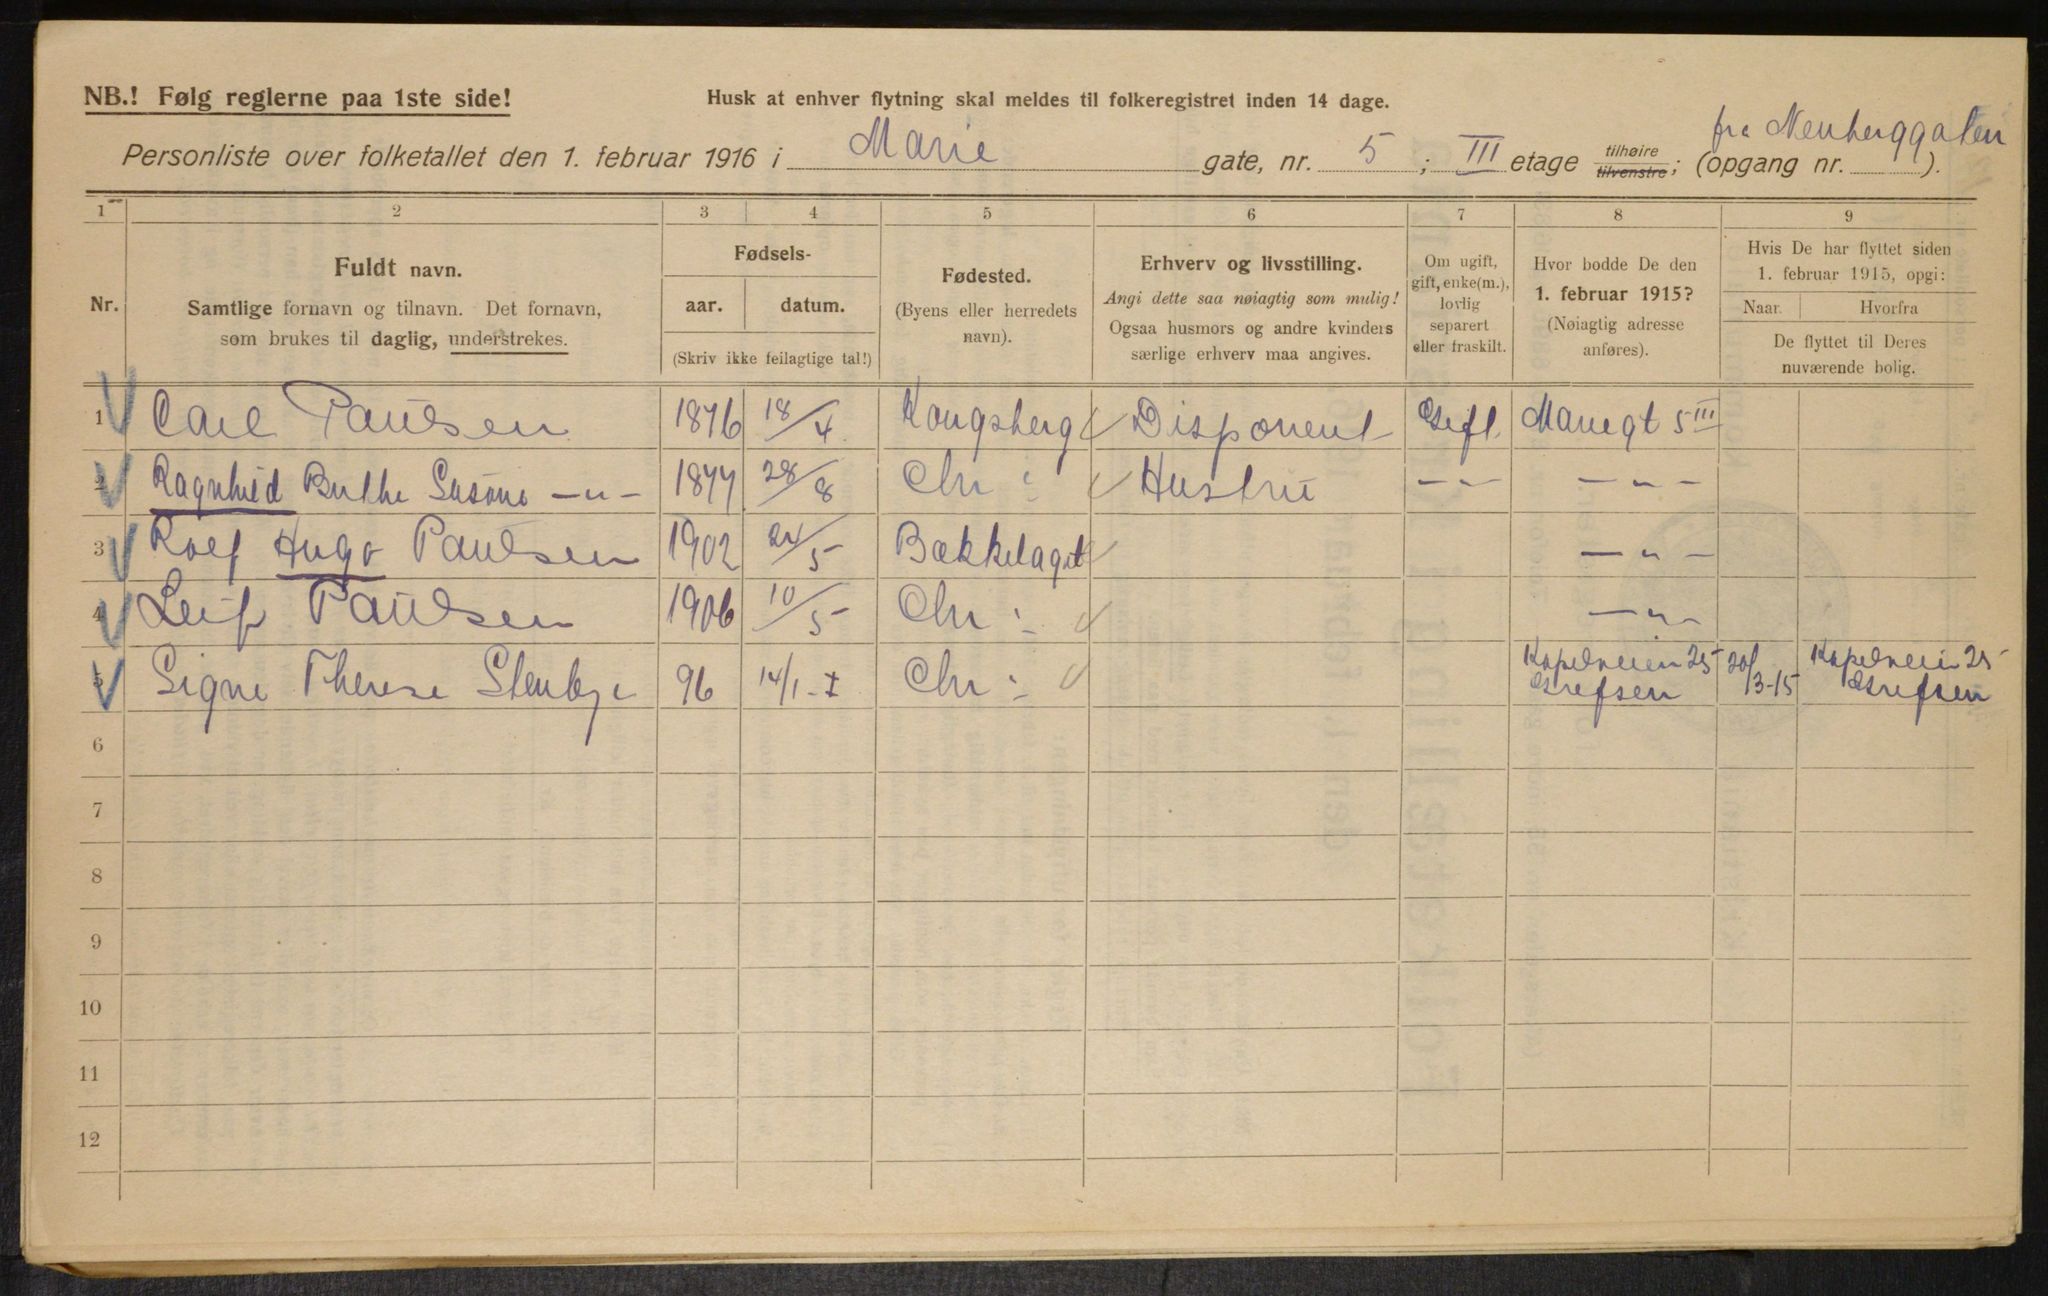 NB.! Følg reglerne paa 1ste side!
Husk at enhver flytning skal meldes til folkeregistret inden 14 dage.
fra Neuberggaten
Personliste over folketallet den 1. februar 1916 i Marie gate, nr. 5 ; III etage tilhøire tilvenstre ; (opgang nr. ).
1 2 3 4 5 6 7 8 9
Nr.
Fuldt navn.
Samtlige fornavn og tilnavn. Det fornavn,
som brukes til daglig, understrekes.
Fødsels-
aar. datum.
(Skriv ikke feilagtige tal!)
Fødested.
(Byens eller herredets
navn).
Erhverv og livsstilling.
Angi dette saa nøiagtig som mulig!
Ogsaa husmors og andre kvinders
særlige erhverv maa angives.
Om ugift,
gift, enke(m.),
lovlig
separert
eller fraskilt.
Hvor bodde De den
1. februar 1915?
(Nøiagtig adresse
anføres).
Hvis De har flyttet siden
1. februar 1915, opgi:
Naar. Hvorfra
De flyttet til Deres
nuværende bolig.
1 Carl Paulsen 1876 18/4 Kongsberg Disponent Gift Mariegt 5 III
2 Ragnhild Buthe Susanne —"— 1877 28/8 Chr: Hustru —"— —"—
3 Rolf Hugo Paulsen 1902 24/5 Bækkelaget —"—
4 Leif Paulsen 1906 10/5 Chr: —"—
5 Signe Therese Stenbye 96 14/1 Chr: Kapelveien 25 Grefsen 20/3-15 Kapelveien 25 Grefsen
6
7
8
9
10
11
12